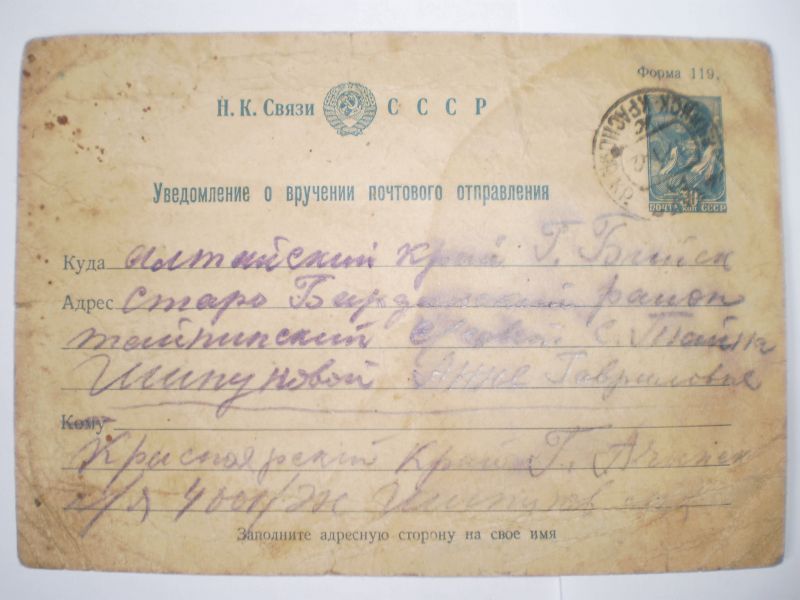 Форма 119.
Н. К. Связи СССР
30
ПОЧТА КОП СССР
Уведомление о вручении почтового отправления
Куда Алтайский край Г. Бийск
Адрес Старо Бардинский район
тайнинский С. Тайна
Шипуновой Анне Гавриловне
Кому
Красноярский край Г. Ачинск
п/я Шипунов
Заполните адресную сторону на свое имя